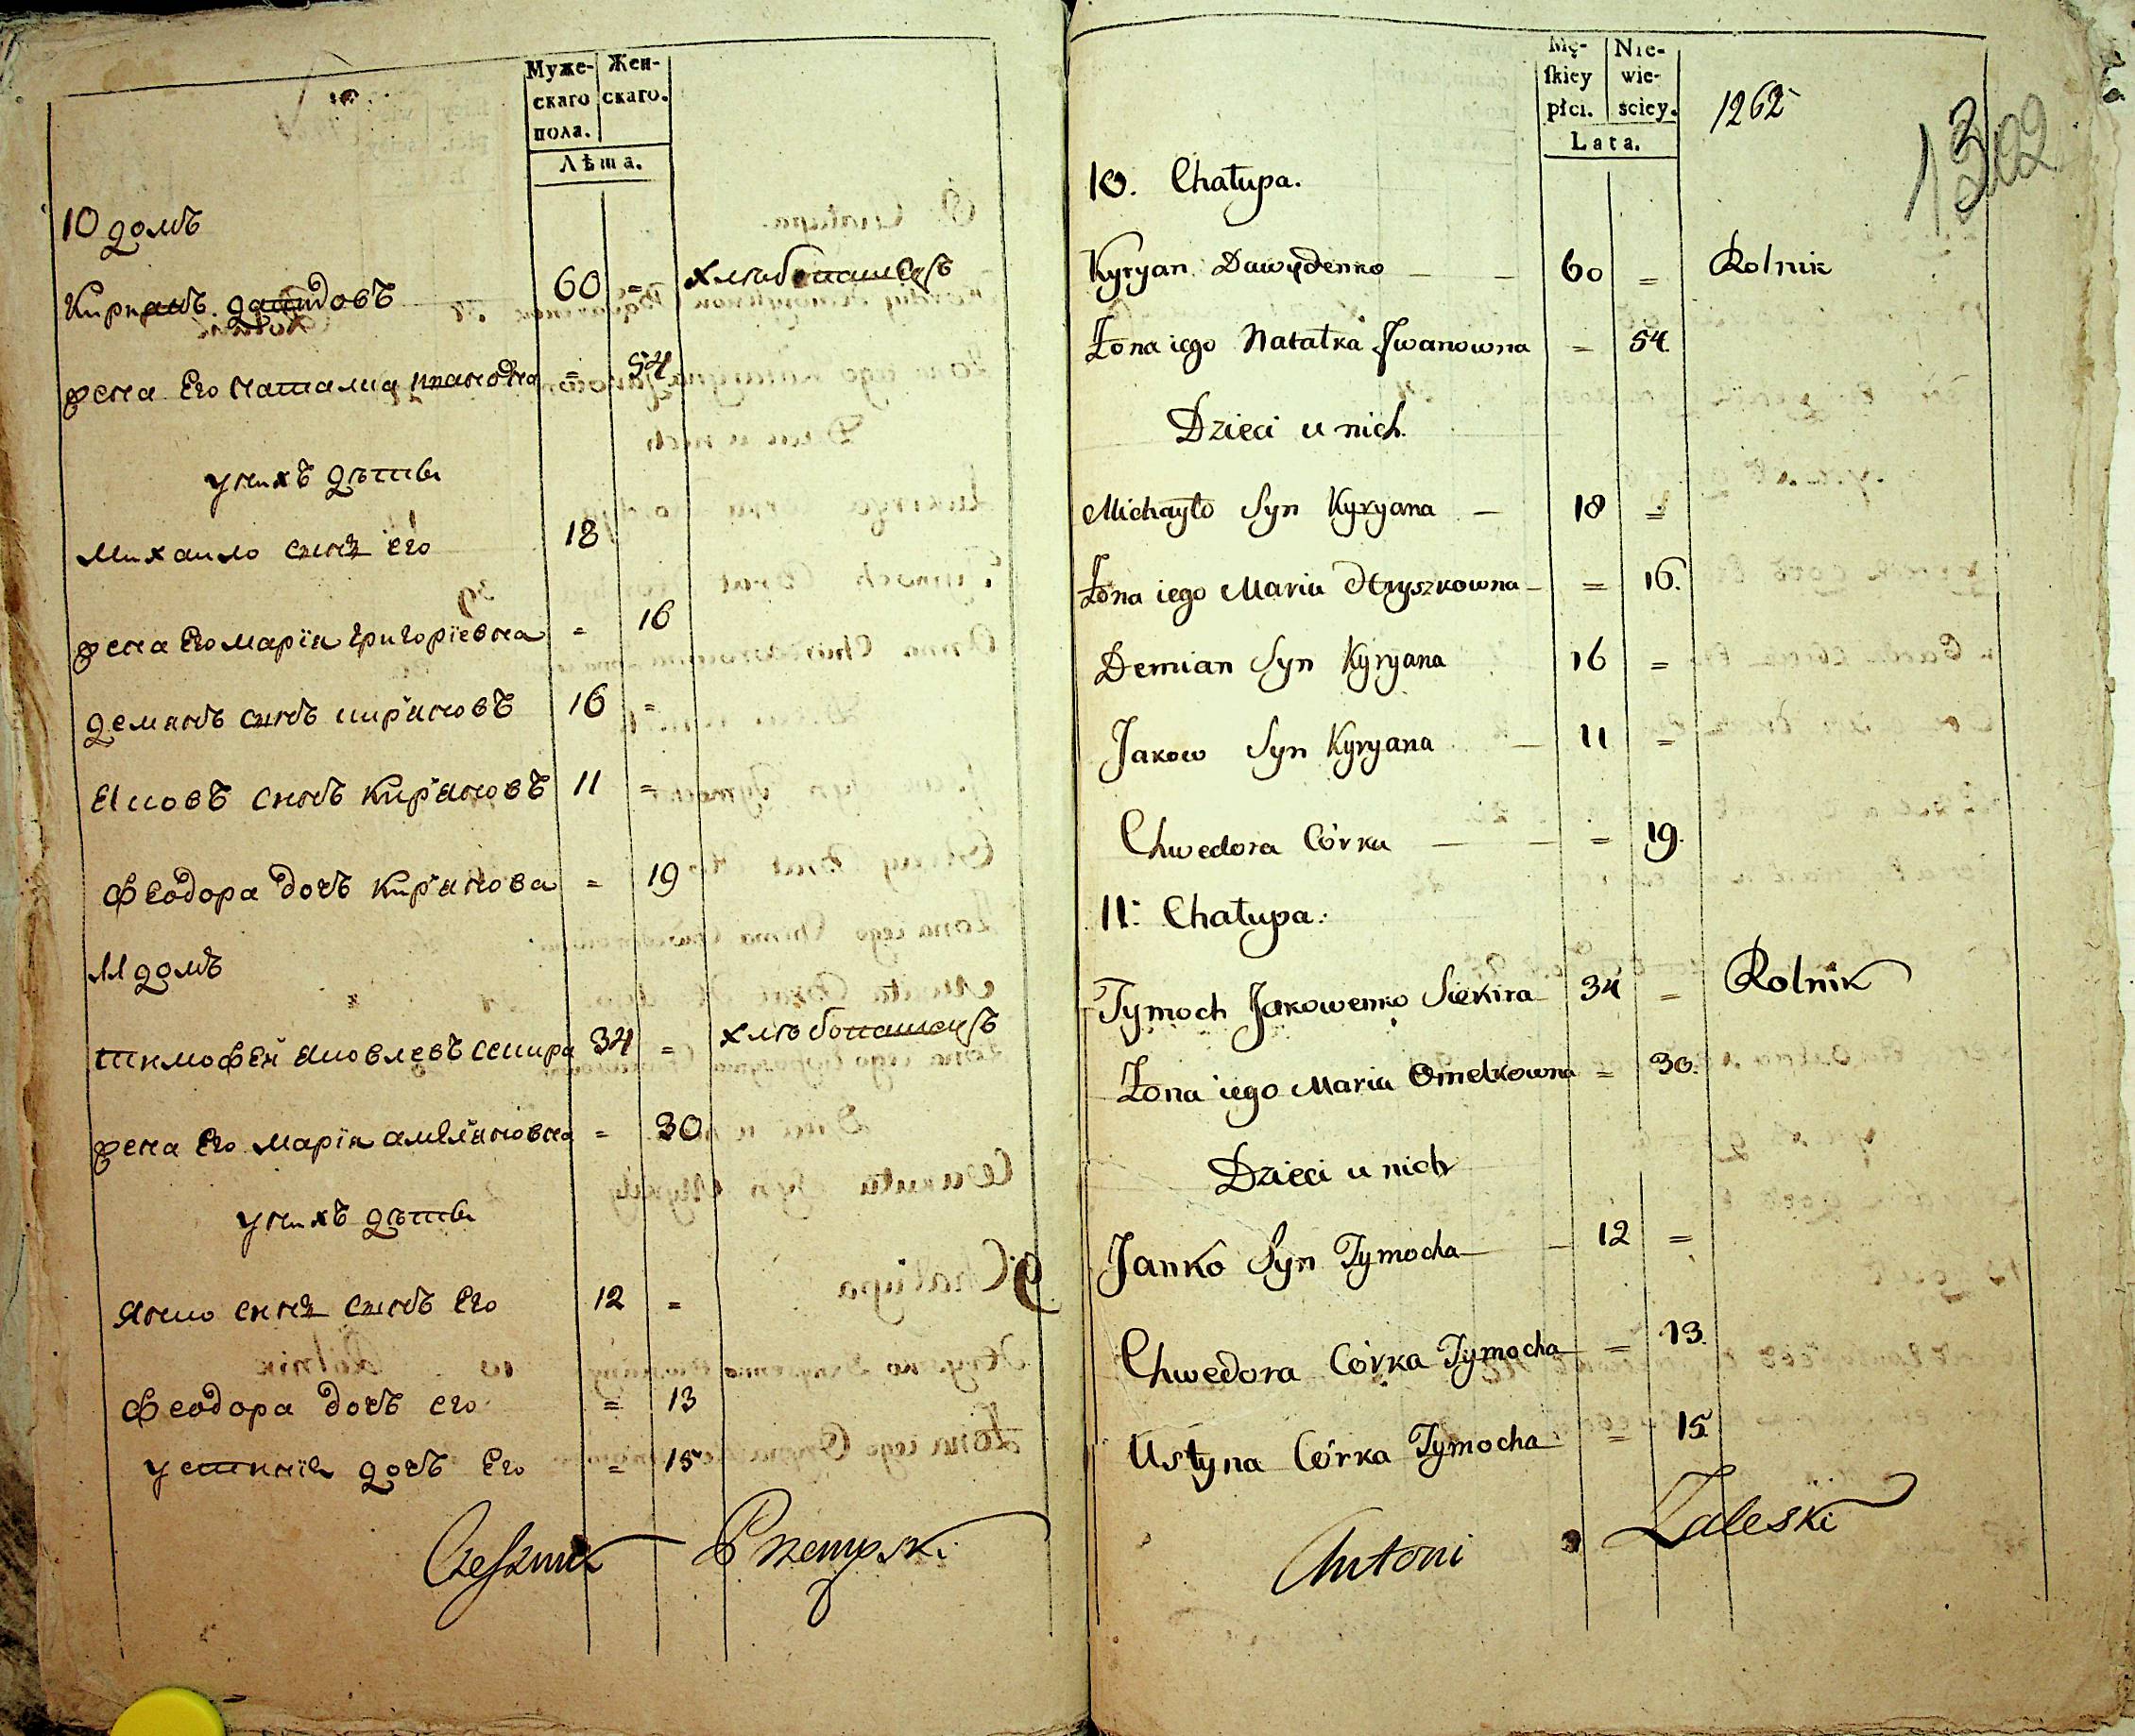 Муже- Жен-
скаго скаго.
пола.
Лѣта.
10 домъ
Кириянъ давидовъ 60 = хлѣбопашецъ
жена Его наталиа ивановна = 54
у нихъ дѣтѣи
михаило сынъ его 18
жена Его марїя григорїевна = 16
демянъ сынъ кирʼановъ 16 =
Яковъ сынъ кирʼановъ 11 =
Феодора дочь кирʼанова = 19
11 домъ
тимофей яковлевъ секира 34 = хлѣбопашецъ
жена Его марїя амелʼановна = 30
у нихъ дѣтѣи
янко сынъ сынъ Его 12 =
Феодора дочь его = 13
устинїя дочь Его = 15
Mę- Nie-
ſkiey wie-
płci. ściey.
Lata.
1262
1302
10. Chałupa.
Kyryan Dawydenko — — 60 = Rolnik
Żona iego Natałka Jwanowna = 54.
Dzieci u nich.
Michayło Syn Kyryana — 18 =
Żona iego Maria Hryszkowna — = 16.
Demian Syn Kyryana 16 =
Jakow Syn Kyryana — 11 =
Chwedora Córka — — = 19.
11. Chałupa.
Tymoch Jakowenko Siekira 34 = Rolnik
Żona iego Maria Omelkowna = 30.
Dzieci u nich
Janko Syn Tymocha — 12 =
Chwedora Córka Tymocha = 13.
Ustyna Córka Tymocha = 15
Antoni Zaleski